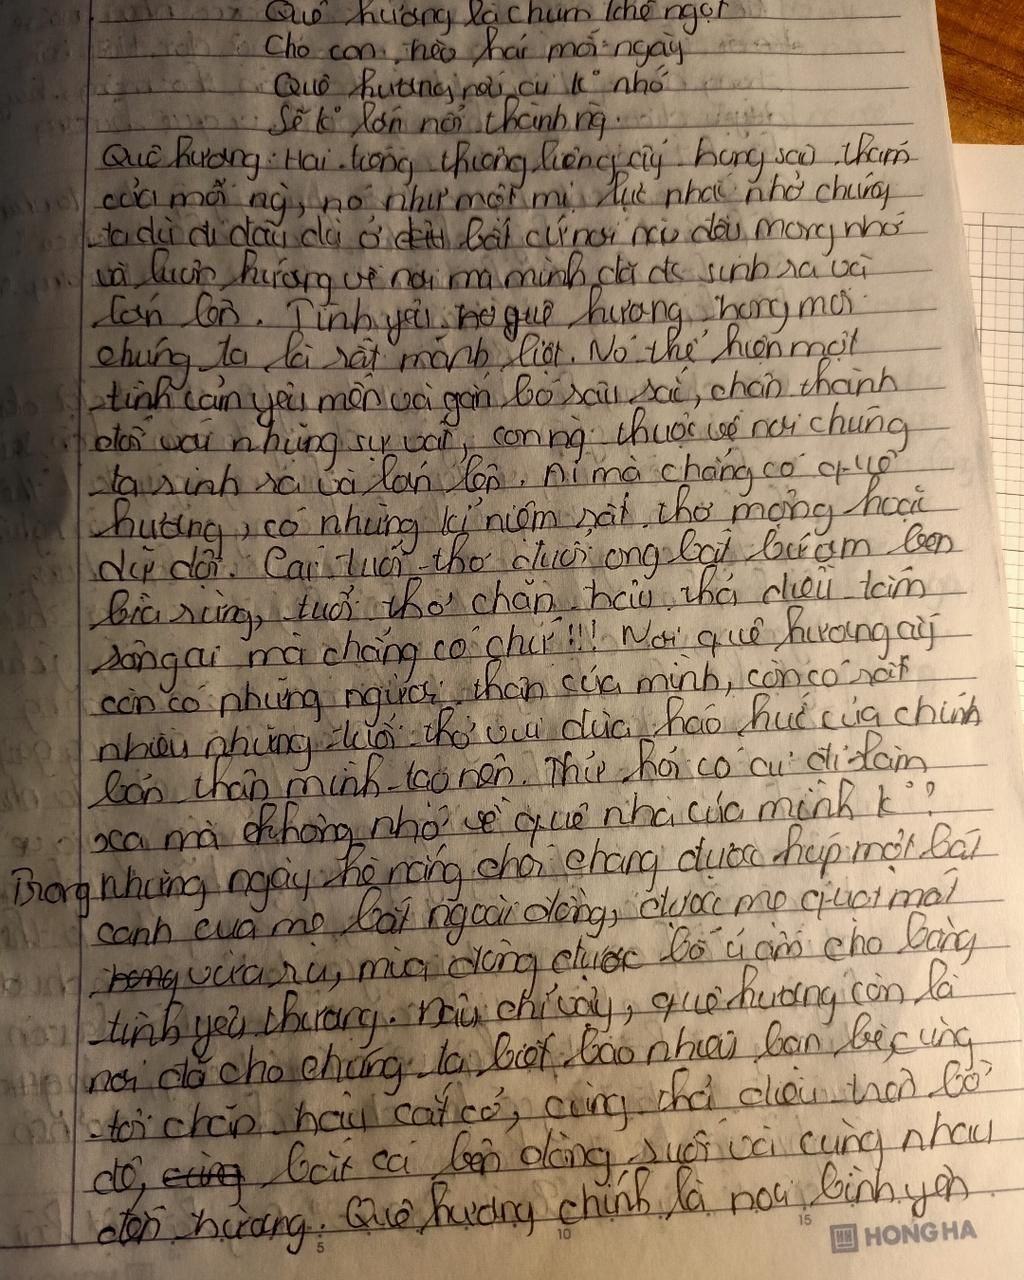 Quê hương là chùm khế ngọt
Cho con trèo hái mỗi ngày
Quê hương nếu ai k° nhớ
Sẽ k° lớn nổi thành ng.
Quê hương: Hai tiếng thương liêng ấy hằng sâu thẳm
của mỗi ng, nó như một mị lực nhắc nhở chúng
ta dù đi đâu dù ở bất cứ nơi nào đều mong nhớ
và luôn hướng về nơi mà mình đã đc sinh ra và
lớn lên. Tình yêu quê hương trong mỗi
chúng ta là rất mãnh liệt. Nó thể hiện một
tình cảm yêu mến và gắn bó sâu sắc, chân thành
đối với những sự vật, con ng thuộc về nơi chúng
ta sinh ra và lớn lên. mà chẳng có quê
hương, có những kỉ niệm rất thơ mộng hoặc
dữ dội. Cái tuổi thơ đuổi ong bắt bướm bên
bìa rừng, tuổi thơ chăn trâu thả diều tắm
sông ai mà chẳng có chứ!!! Nơi quê hương ấy
còn có những người thân của mình, còn có rất
nhiều những tuổi thơ vui đùa háo hức của chính
bản thân mình tạo nên. Thử hỏi có ai đi làm
xa mà không nhớ về quê nhà của mình k°?
Trong những ngày hè nóng chói chang được húp một bát
canh cua mẹ bắt ngoài đồng, được mẹ quạt mát
vừa ru, mùa đông được bố ủ ấm cho bằng
tình yêu thương. chỉ vậy, quê hương còn là
nơi đã cho chúng ta biết bao nhiêu bạn bè, cùng
tôi chăn trâu cắt cỏ, cùng thả diều trên bờ
đê, bắt cá bên dòng suối và cùng nhau
đến trường. Quê hương chính là nơi bình yên
5 10 15
HONG HA